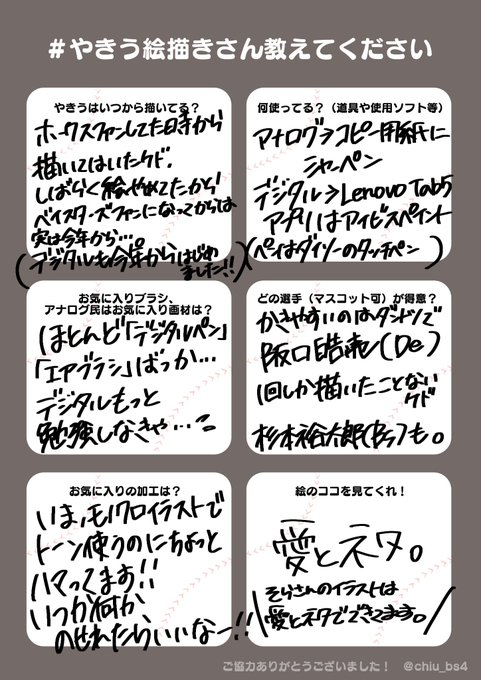 #やきう絵描きさん教えてください
やきうはいつから描いてる？
ホークスファンしてた時から
描いてはいたケド、
しばらく絵やめてたから
ベイスターズファンになってからは
実は今年から…。
(デジタルも今年からはじめ
ました!!)
何使ってる？（道具や使用ソフト等）
アナログ→コピー用紙に
シャーペン
デジタル→Lenovo Tab5
アプリはアイビスペイント
(ペンはダイソーのタッチペン)
お気に入りブラシ、
アナログ民はお気に入り画材は？
ほとんど「デジタルペン」
「エアブラシ」ばっか…
デジタルもっと
勉強しなきゃ…
どの選手（マスコット可）が得意？
かきやすいのはダントツで
阪口皓亮(De)
1回しか描いたことない
ケド
杉本裕太郎(Bs)も。
お気に入りの加工は？
いま、モノクロイラストで
トーン使うのにちょっと
ハマってます!!
いつか何か、
のせれたらいいなー!!
絵のココを見てくれ！
愛とネタ。
そらさんのイラストは
愛とネタでできてます。
ご協力ありがとうございました！　@chiu_bs4